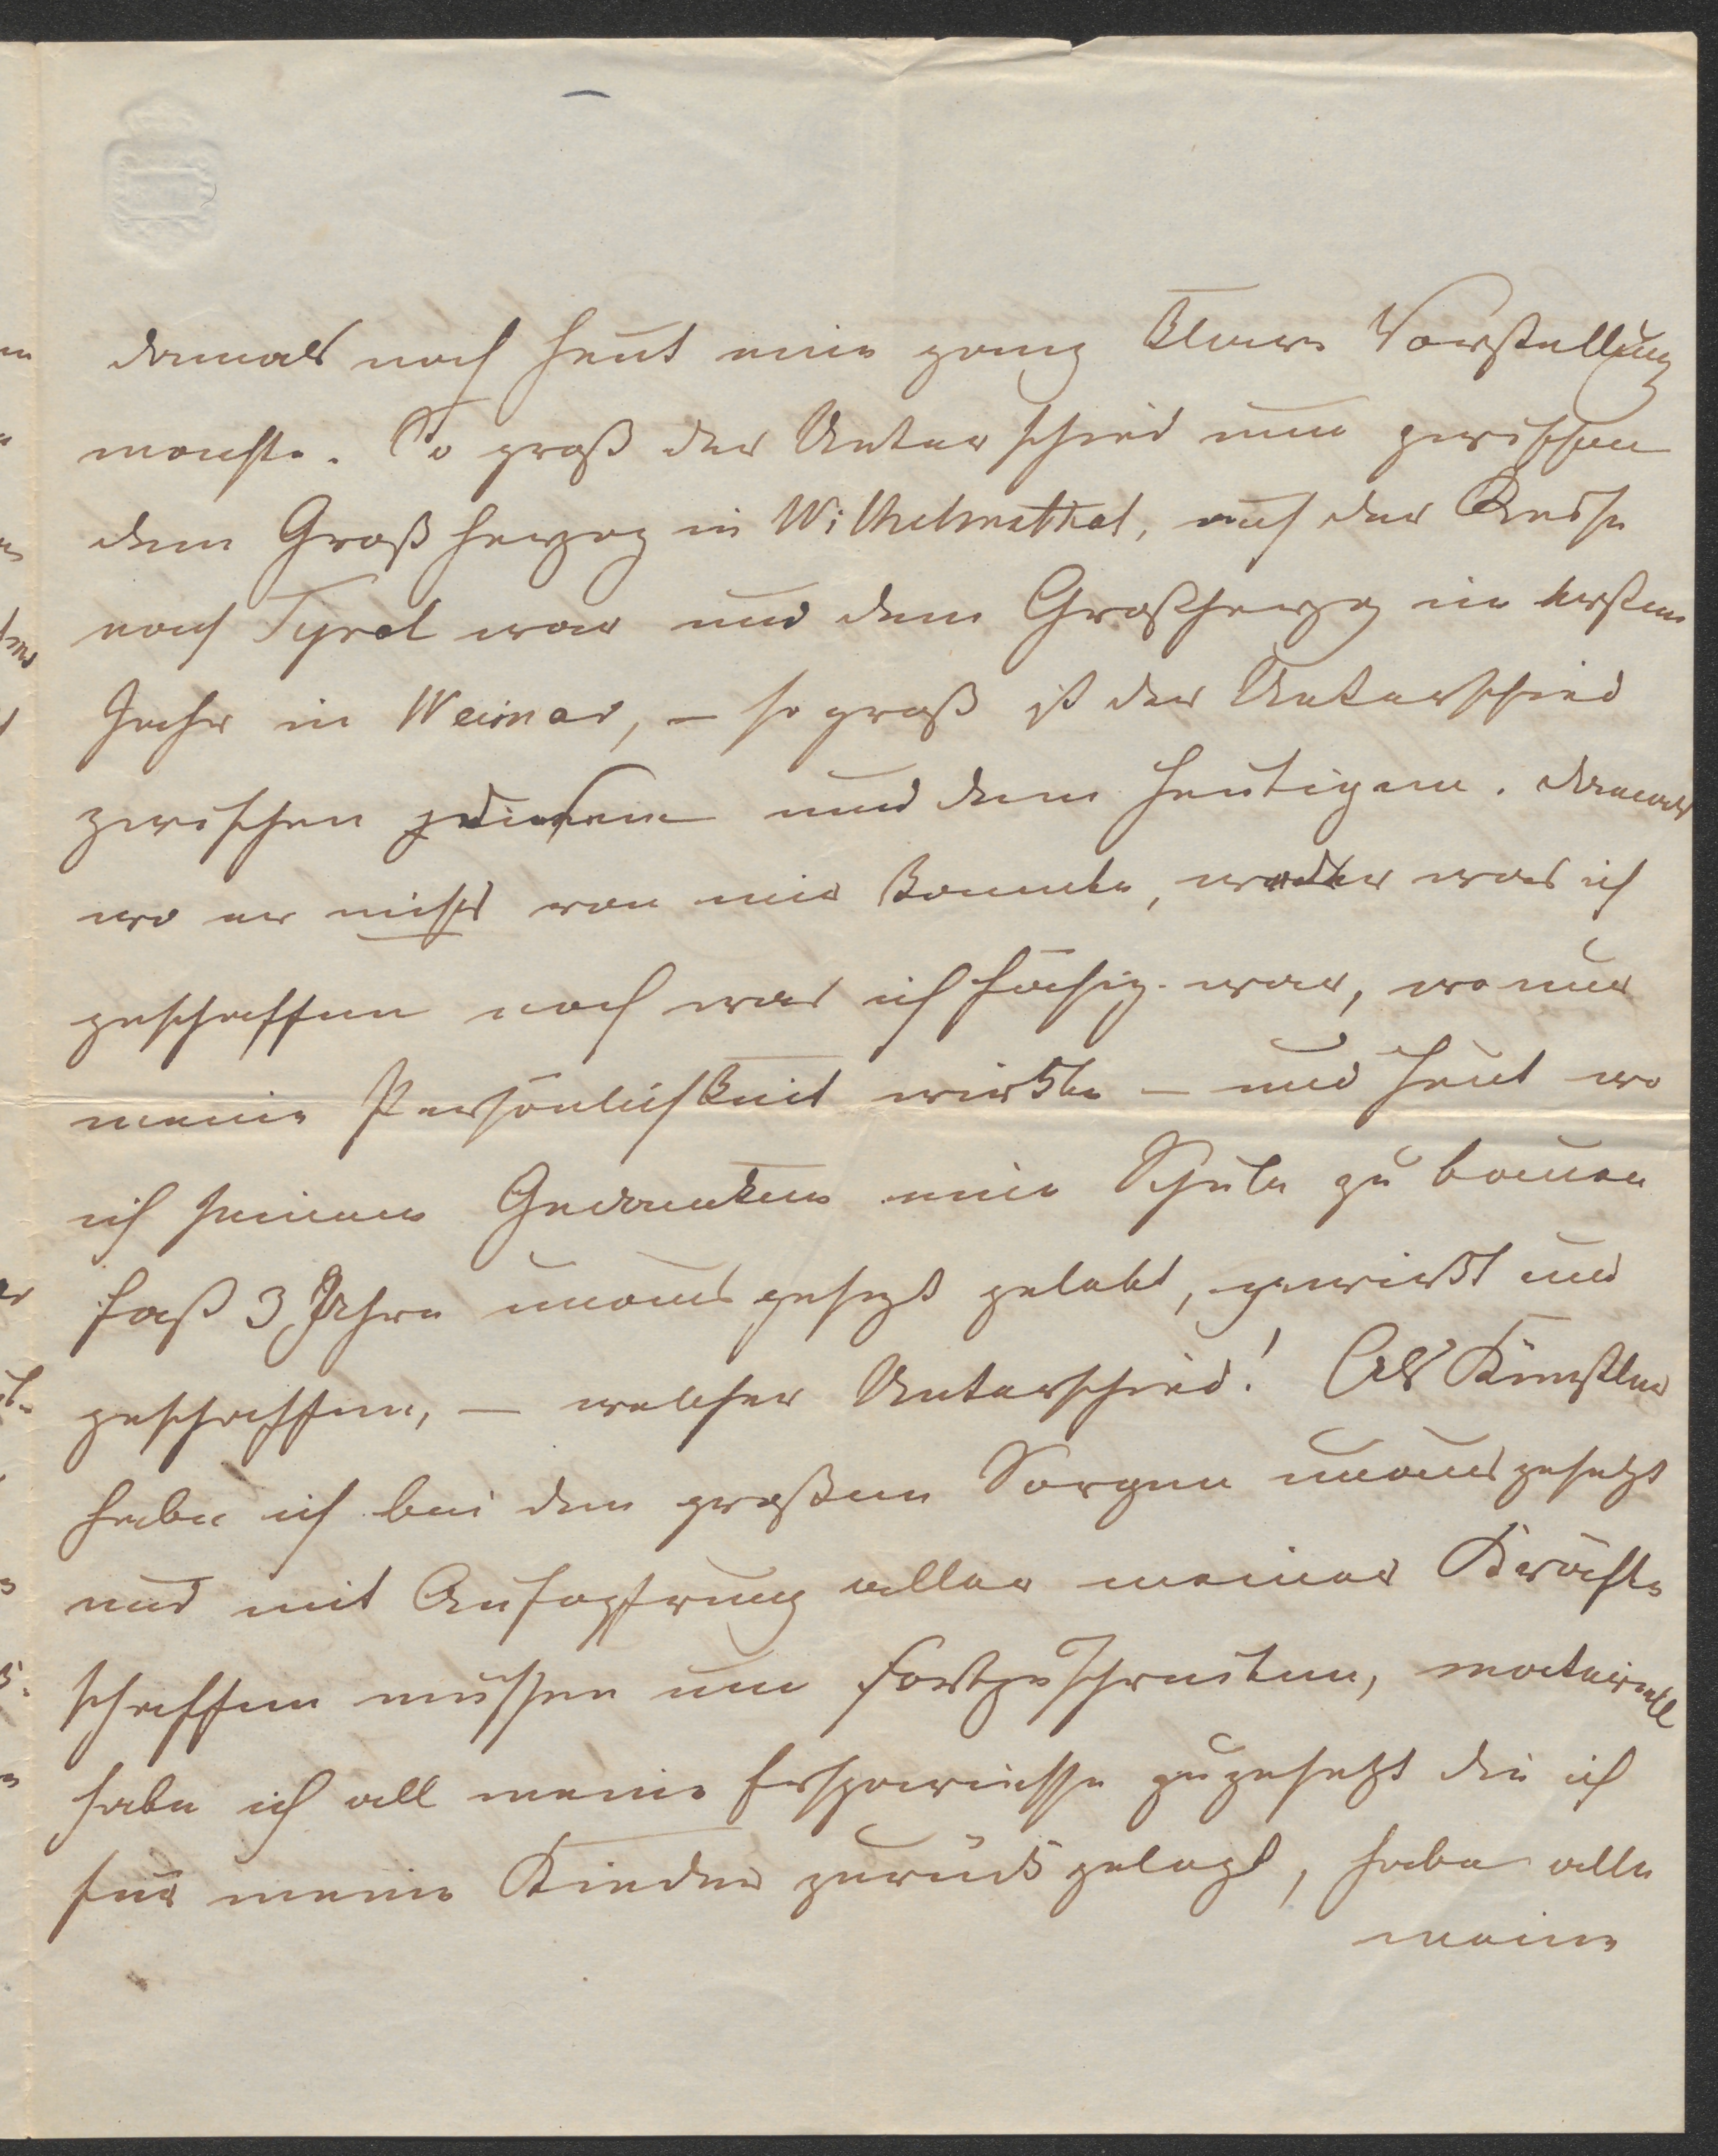 damals noch heut eine ganz klare Vorstellung
machte. So groß der Unterschied nun zwischen
dem Großherzog in Wilhelmsthal, auf der Reise
nach Tyrol war und dem Großherzog im ersten
Jahr in Weimar, – so groß ist der Unterschied
zwischen diesem und dem heutigen. Damals
wo er nichts von mir kannte, weder was ich
geschaffen noch was ich fähig war, wo nur
meine Persönlichkeit wirkte – und heut wo
ich seinem Gedanken eine Schule zu bauen
fast 3 Jahre unausgesezt gelebt, gewirkt und
geschaffen, – welcher Unterschied! Als Künstler
habe ich bei den großen Sorgen unausgesetzt
und mit Aufopfrung aller meiner Kräfte
schaffen müssen um fortzuschreiten, materiell
habe ich all meine Ersparnisse zugesetzt die ich
für meine Kinder zurückgelegt, habe alle
meine